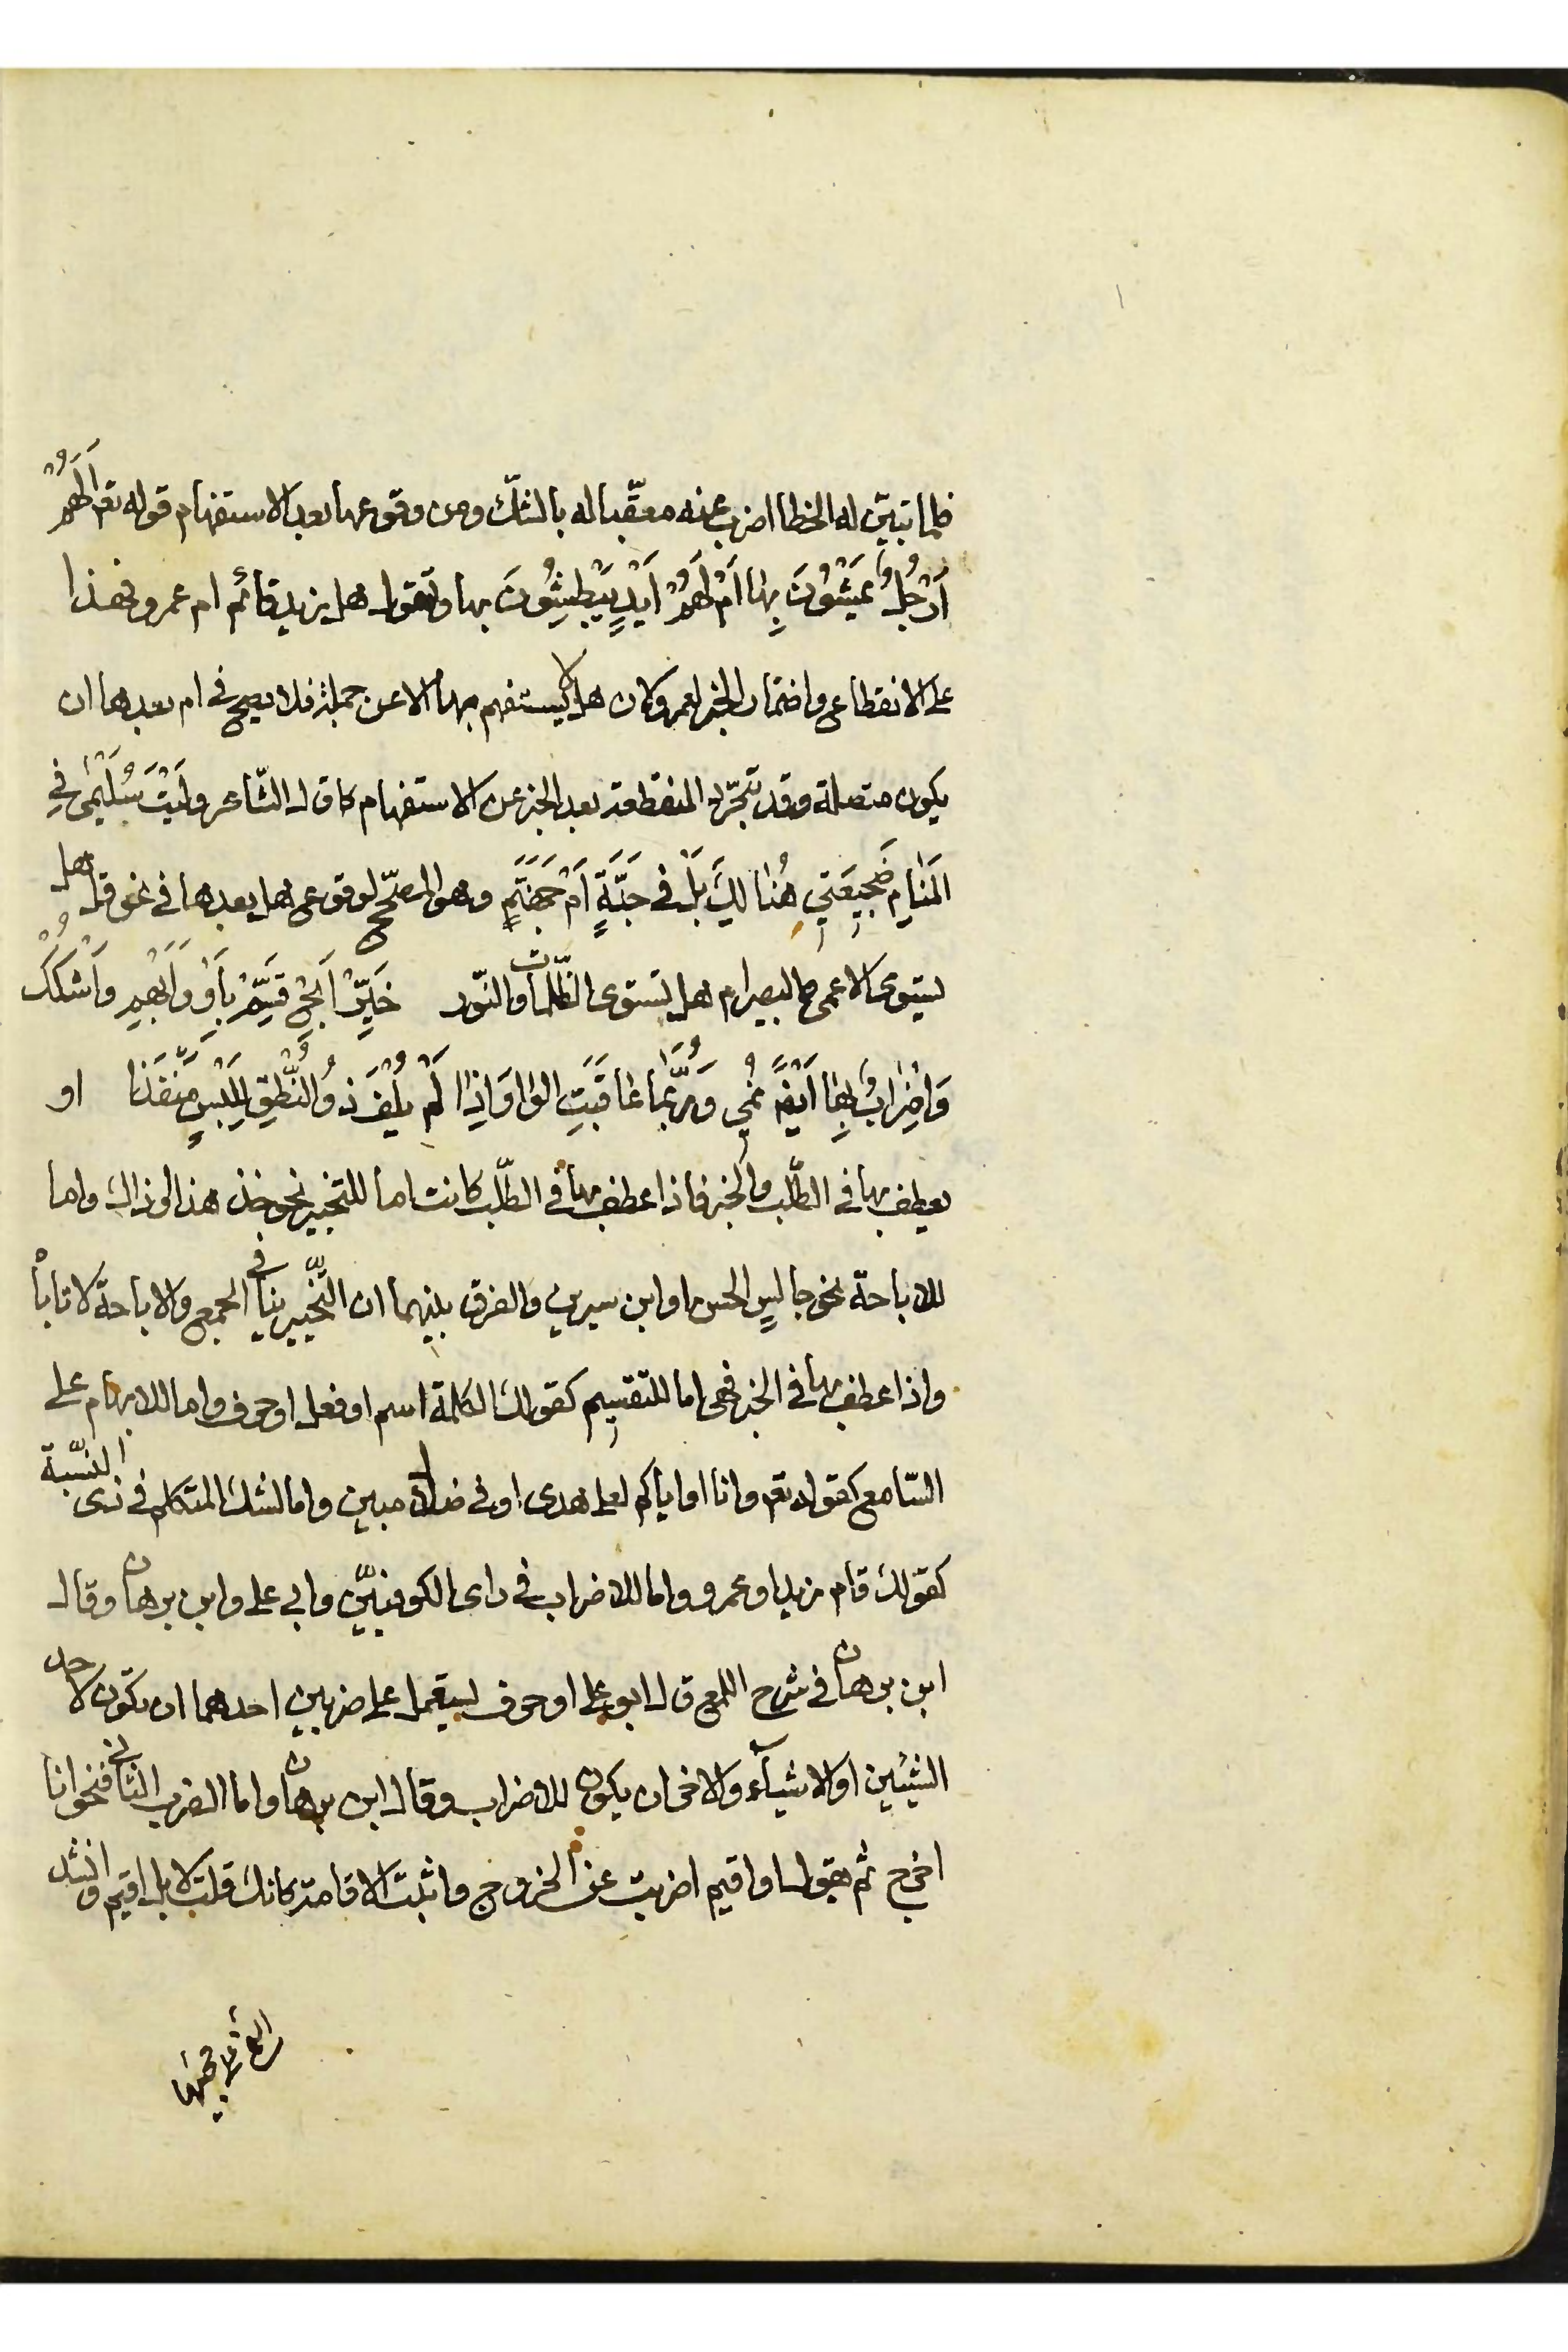 فلما تبين له الخطا اضرب عنه معقّبا له بالشكّ ومن وقوعها بعد الاستفهام قوله تعم اَلَهُمْ
اَرْجُلٌ يَمْشُونَ بِهٰا اَمْ لَهُمْ اَيْدٍ يَبْطِشُونَ بها وتقول هل زيد قائم ام عمرو فهذا
على الانقطاع واضمار الخبر لعمرو كان هل لا يستفهم بها الا عن جملة فلا يصح في ام بعدها ان
يكون متصلة وقد تتجرّد المنقطعة بعد الخبر عن الاستفهام كما قال الشّاعر وَلَيْتَ سُلَيْمىٰ فِي
المَنٰامِ ضَجِيعَتِي هُنٰالِكَ بَلْ في جَنَّةٍ اَمْ جَهَنَّمِ وهو المصحّح لوقوع هل بعدها في نحو قل هل
يستوى الاعمى والبصير ام هل تستوى الظّلمات والنّور خَيِّرْ اَبِحْ قَسِّمْ بِاَوْ وَاَبْهِمِ وَاشْكُكْ
وَاِضْرٰابٌ بِهٰا اَيْضًا نُمِي وَرُبَّمٰا عٰاقَبَتِ الوٰاوَ اِذٰا لَمْ يُلْفِ ذُو النُّطْقِ لِلَبْسٍ مَنْفَذٰا او
يعطف بها في الطّلب والخبر فاذا عطف بها في الطّلب كانت اما للتخيير نحو خذ هذا او ذاك واما
للاباحة نحو جالسٍ الحسن او ابن سيرين والفرق بينهما ان التّخيير ينافي الجمع والاباحة لا تاباه
واذا عطف بها في الخبر فهى اما للتقسيم كقولك الكلمة اسم او فعل او حرف واما للابهام على
السّامع كقوله تعم وانا او اياكم لعلى هدى او فى ضلال مبين واما لشك المتكلم في ذى النسبة
كقولك قام زيد او عمرو واما للاضراب في راى الكوفيّين وابي على وابن برهان وقال
ابن برهان في شرح اللمع قال ابو على او حرف يستعمل على ضربين احدهما ان يكون لاحد
الشيئين او الاشيآء والاخر ان يكون للاضراب وقال ابن برهان واما الضرب الثاني فنحو انا
اخرج ثم تقول او اقيم اضربت عن الخروج واثبت الاقامة كانك قلت لا بل اقيم وانشد